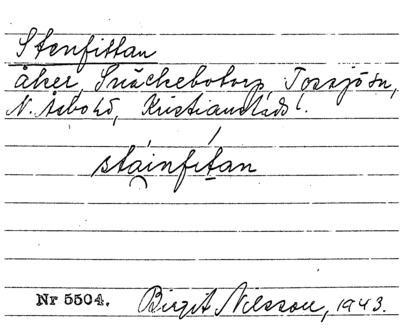 Stenfittan
åker, Snäckebotorp, Torsjösn,
N. Åsbo hd, Kristianstads l.
stáinfítan
Nr 5504. Birgit Nilsson, 1943.